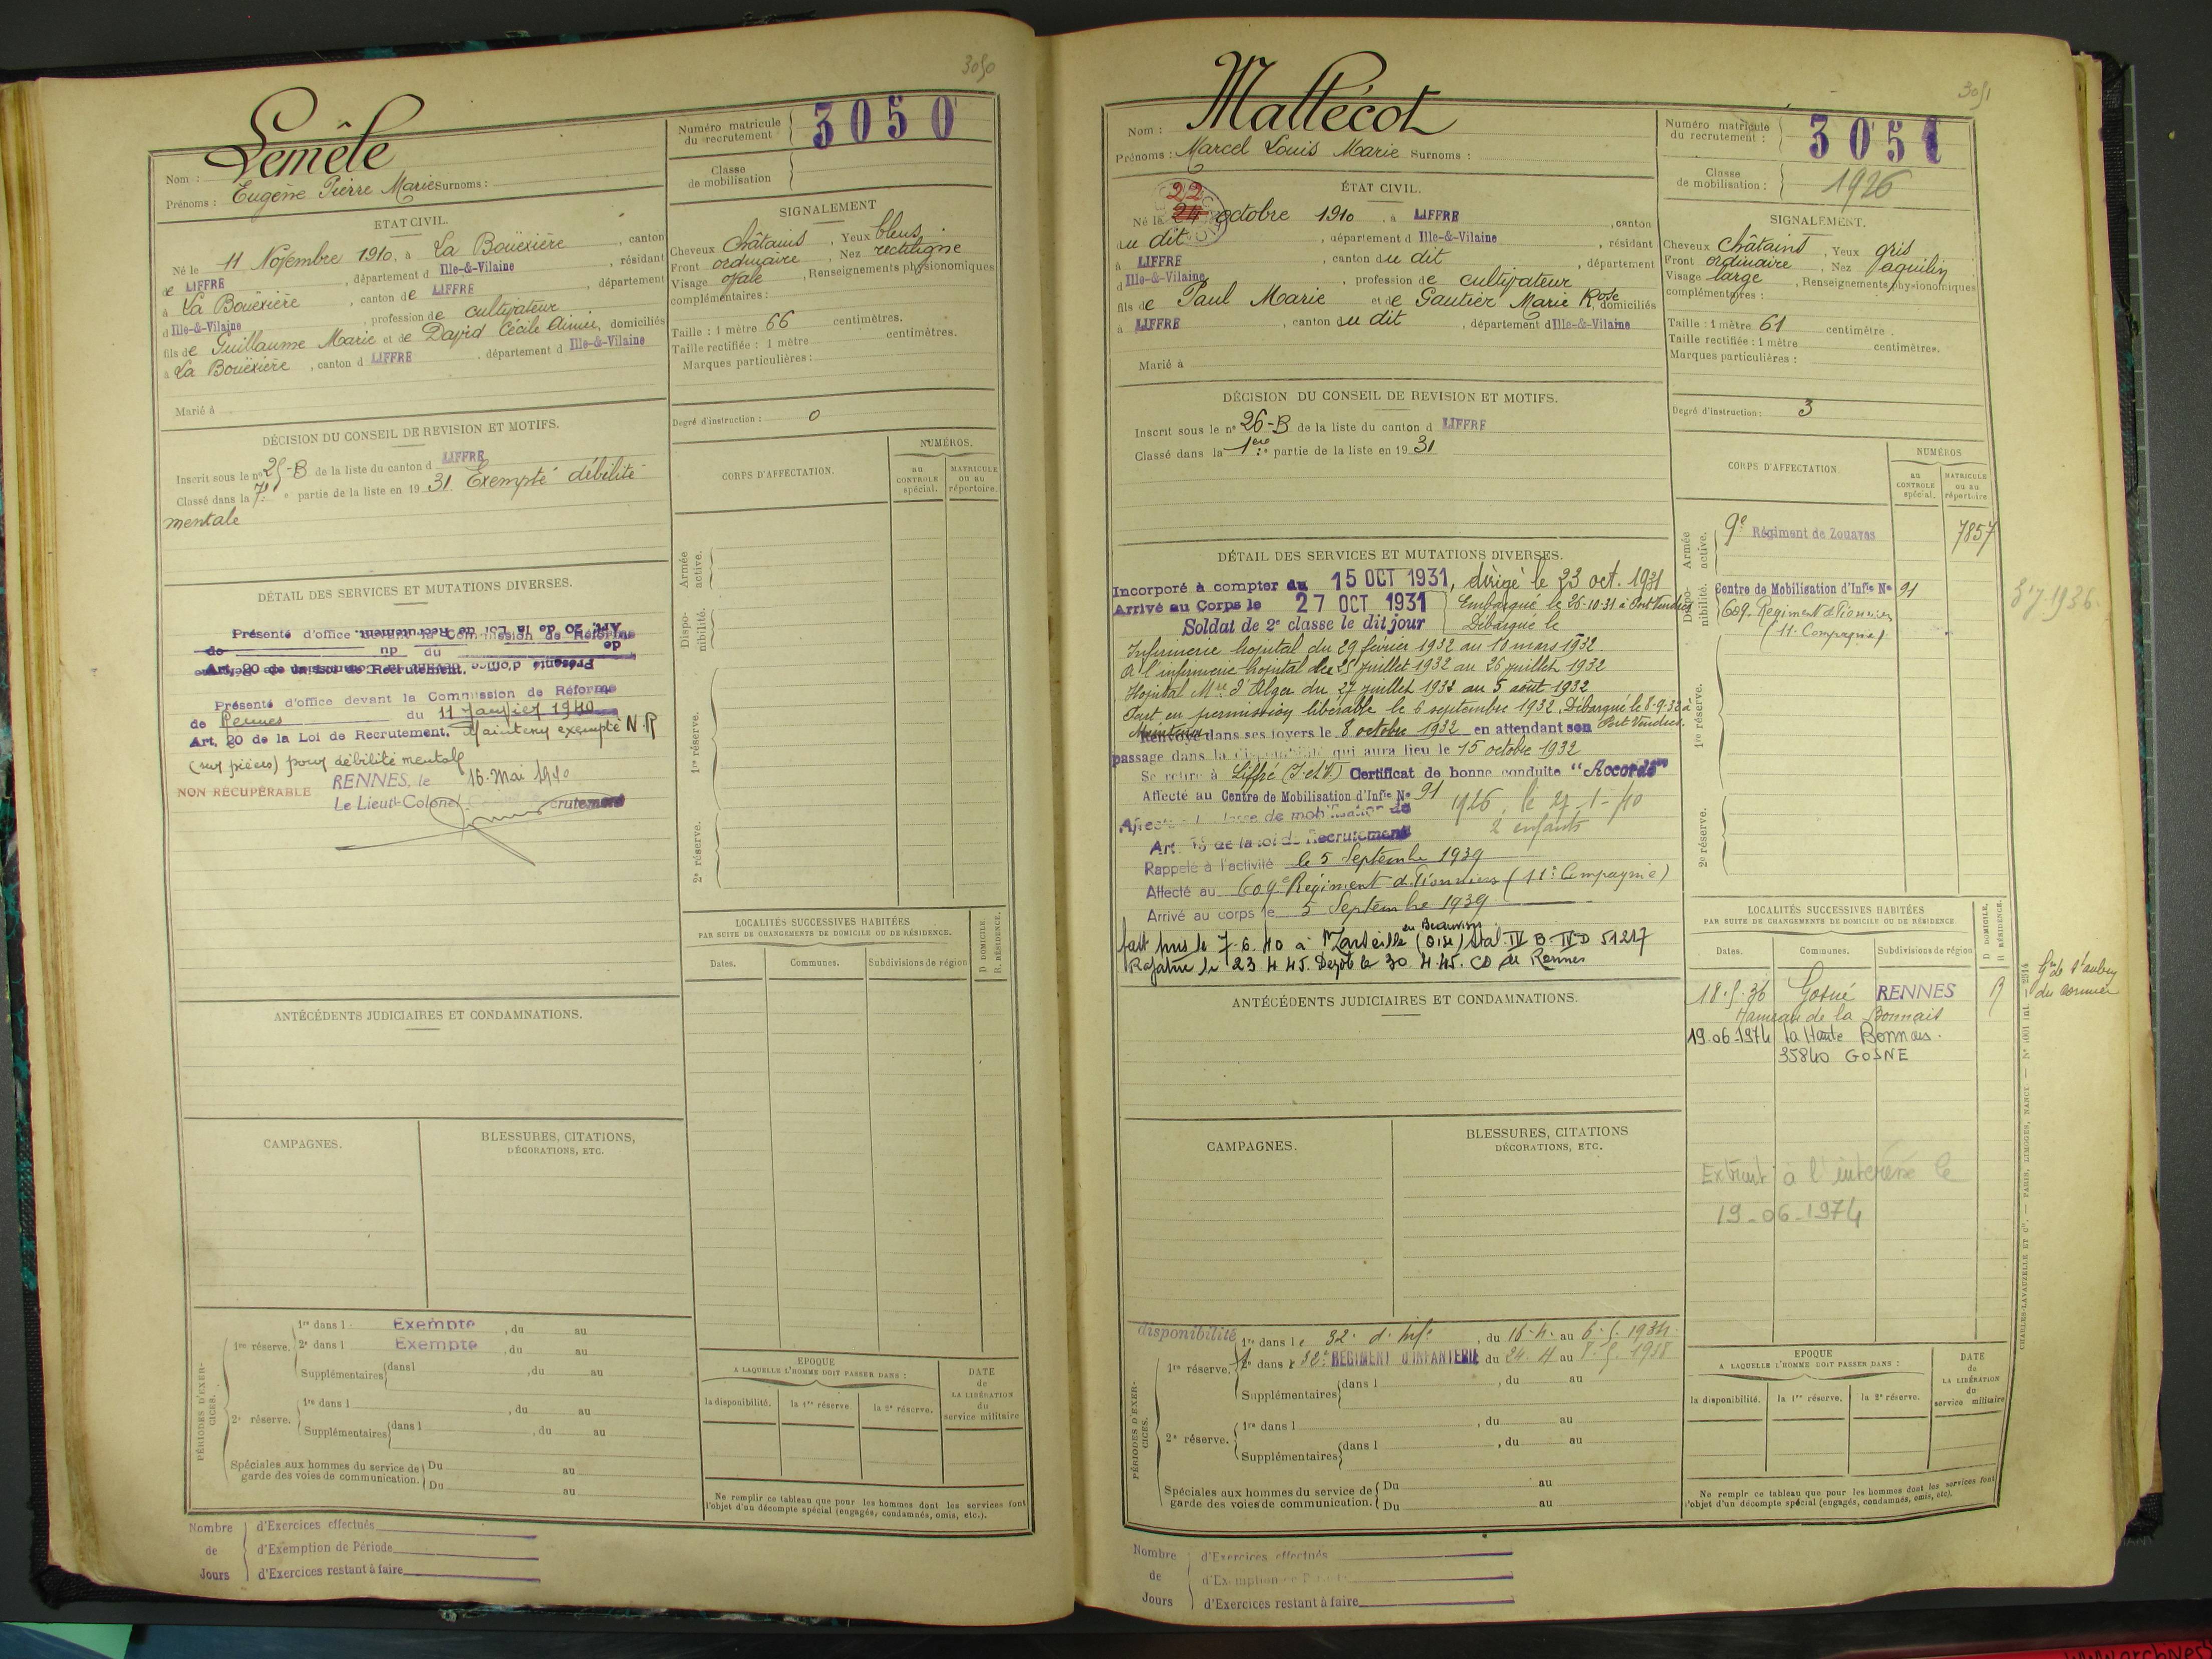 3050
Lemêle
Nom :
Prénoms : Eugène Pierre Marie Surnoms :
Numéro matricule du recrutement 3050
Classe de mobilisation
ETAT CIVIL.
Né le 11 Novembre 1910, à La Bouëxière, canton
de LIFFRE, département d Ille-&-Vilaine, résidant
à La Bouëxière, canton de LIFFRE, département
d Ille-&-Vilaine, profession de cultivateur
fils de Guillaume Marie et de David Cécile Aimée, domiciliés
à La Bouëxière, canton d LIFFRE, département d Ille-&-Vilaine
Marié à
SIGNALEMENT
Cheveux châtains, Yeux bleus
Front ordinaire, Nez rectiligne
Visage ovale, Renseignements physionomiques
complémentaires :
Taille : 1 mètre 66 centimètres.
Taille rectifiée : 1 mètre centimètres.
Marques particulières :
Degré d'instruction : 0
DÉCISION DU CONSEIL DE REVISION ET MOTIFS.
Inscrit sous le n° 25-B de la liste du canton d LIFFRE
Classé dans la 7e partie de la liste en 1931. Exempté débilité
mentale
DÉTAIL DES SERVICES ET MUTATIONS DIVERSES.
Présenté d'office devant la Commission de Réforme
de du
Art. 20 de la Loi de Recrutement.
Présenté d'office devant la Commission de Réforme
de Rennes du 11 Janvier 1940
Art. 20 de la Loi de Recrutement. Maintenu exempté N.R
(sur pièces) pour débilité mentale
RENNES, le 16 Mai 1940
NON RÉCUPÉRABLE
Le Lieut-Colonel
CORPS D'AFFECTATION.
NUMÉROS.
au CONTROLE spécial.
MATRICULE ou au répertoire.
Armée active.
Dispo-nibilité.
1re réserve.
2e réserve.
LOCALITÉS SUCCESSIVES HABITÉES
PAR SUITE DE CHANGEMENTS DE DOMICILE OU DE RÉSIDENCE.
Dates. Communes. Subdivisions de région
D DOMICILE. R. RÉSIDENCE.
ANTÉCÉDENTS JUDICIAIRES ET CONDAMNATIONS.
CAMPAGNES.
BLESSURES, CITATIONS,
DÉCORATIONS, ETC.
PÉRIODES D'EXER-CICES.
1re réserve. 1re dans l Exempté, du au
2e dans l Exempté, du au
Supplémentaires dans l, du au
2e réserve. 1re dans l, du au
Supplémentaires dans l, du au
Spéciales aux hommes du service de garde des voies de communication. Du au
Du au
EPOQUE
A LAQUELLE L'HOMME DOIT PASSER DANS :
la disponibilité. la 1re réserve. la 2e réserve.
DATE de LA LIBÉRATION du service militaire
Ne remplir ce tableau que pour les hommes dont les services font
l'objet d'un décompte spécial (engagés, condamnés, omis, etc.).
Nombre de Jours
d'Exercices effectués
d'Exemption de Période
d'Exercices restant à faire
3051
Mallécot
Nom :
Prénoms : Marcel Louis Marie Surnoms :
Numéro matricule du recrutement : 3051
Classe de mobilisation : 1926
ÉTAT CIVIL.
22
Né le 24 octobre 1910, à LIFFRE, canton
du dit, département d Ille-&-Vilaine, résidant
à LIFFRE, canton du dit, département
d Ille-&-Vilaine, profession de cultivateur
fils de Paul Marie et de Gautier Marie Rose, domiciliés
à LIFFRE, canton du dit, département d Ille-&-Vilaine
Marié à
SIGNALEMENT.
Cheveux châtains, Yeux gris
Front ordinaire, Nez aquilin
Visage large, Renseignements physionomiques
complémentaires :
Taille : 1 mètre 61 centimètre.
Taille rectifiée : 1 mètre centimètres.
Marques particulières :
Degré d'instruction : 3
DÉCISION DU CONSEIL DE REVISION ET MOTIFS.
Inscrit sous le n° 26-B de la liste du canton d LIFFRE
Classé dans la 1ère partie de la liste en 1931
DÉTAIL DES SERVICES ET MUTATIONS DIVERSES.
Incorporé à compter du 15 OCT 1931, dirigé le 23 oct. 1931
Arrivé au Corps le 27 OCT 1931 Embarqué le 26-10-31 à Port Vendres
Soldat de 2e classe le dit jour Débarqué le
Infirmerie hôpital du 29 février 1932 au 10 mars 1932.
A l'infirmerie hôpital du 25 juillet 1932 au 26 juillet 1932
Hôpital Mre d'Alger du 27 juillet 1932 au 5 août 1932
Part en permission libérable le 6 septembre 1932. Débarqué le 8-9-32 à
Port Vendres.
Renvoyé dans ses foyers le 8 octobre 1932 en attendant son
passage dans la disponibilité qui aura lieu le 15 octobre 1932
Se retire à Liffré (I-et-V.) Certificat de bonne conduite "Accordé"
Affecté au Centre de Mobilisation d'Infie N° 91
Affecté à la classe de mobilisation de 1926, le 27-1-40
Art. 58 de la loi de Recrutement 2 enfants
Rappelé à l'activité le 5 Septembre 1939
Affecté au 609e Régiment de Pionniers (11e Compagnie)
Arrivé au corps le 5 Septembre 1939
fait pris le 7-6-40 à Marseille en Beauvaisis (Oise) Stal. IV B-IV D 51217
Rapatrié le 23 4 45. Depôt le 30 4 45. CD de Rennes
CORPS D'AFFECTATION.
NUMÉROS
au CONTROLE spécial.
MATRICULE ou au répertoire
Armée active. 9e Régiment de Zouaves 7857
Dispo-nibilité. Centre de Mobilisation d'Infie N° 91
609e Régiment de Pionniers
(11e Compagnie)
1re réserve.
2e réserve.
LOCALITÉS SUCCESSIVES HABITÉES
PAR SUITE DE CHANGEMENTS DE DOMICILE OU DE RÉSIDENCE.
Dates. Communes. Subdivisions de région
D DOMICILE. R RÉSIDENCE.
18.5.36 Gosné RENNES R
Hameau de la Bonnais
19.06.1974 la Haute Bonnais.
35840 GOSNE
Gie de St aubin
du cormier
Extrait à l'intéressé le
19-06-1974
ANTÉCÉDENTS JUDICIAIRES ET CONDAMNATIONS.
CAMPAGNES.
BLESSURES, CITATIONS
DÉCORATIONS, ETC.
PÉRIODES D'EXER-CICES.
disponibilité 1re dans le 32e d'Infie, du 16-4- au 6-5-1934
1re réserve. 1e dans le 32e RÉGIMENT D'INFANTERIE du 24.4 au 8.5.1938
Supplémentaires dans l, du au
2e réserve. 1re dans l, du au
Supplémentaires dans l, du au
Spéciales aux hommes du service de garde des voies de communication. Du au
Du au
EPOQUE
A LAQUELLE L'HOMME DOIT PASSER DANS :
la disponibilité. la 1re réserve. la 2e réserve.
DATE de LA LIBÉRATION du service militaire
Ne remplir ce tableau que pour les hommes dont les services font
l'objet d'un décompte spécial (engagés, condamnés, omis, etc).
CHARLES-LAVAUZELLE ET Cie. — PARIS, LIMOGES, NANCY
Nombre de Jours
d'Exercices effectués
d'Exemption de Période
d'Exercices restant à faire